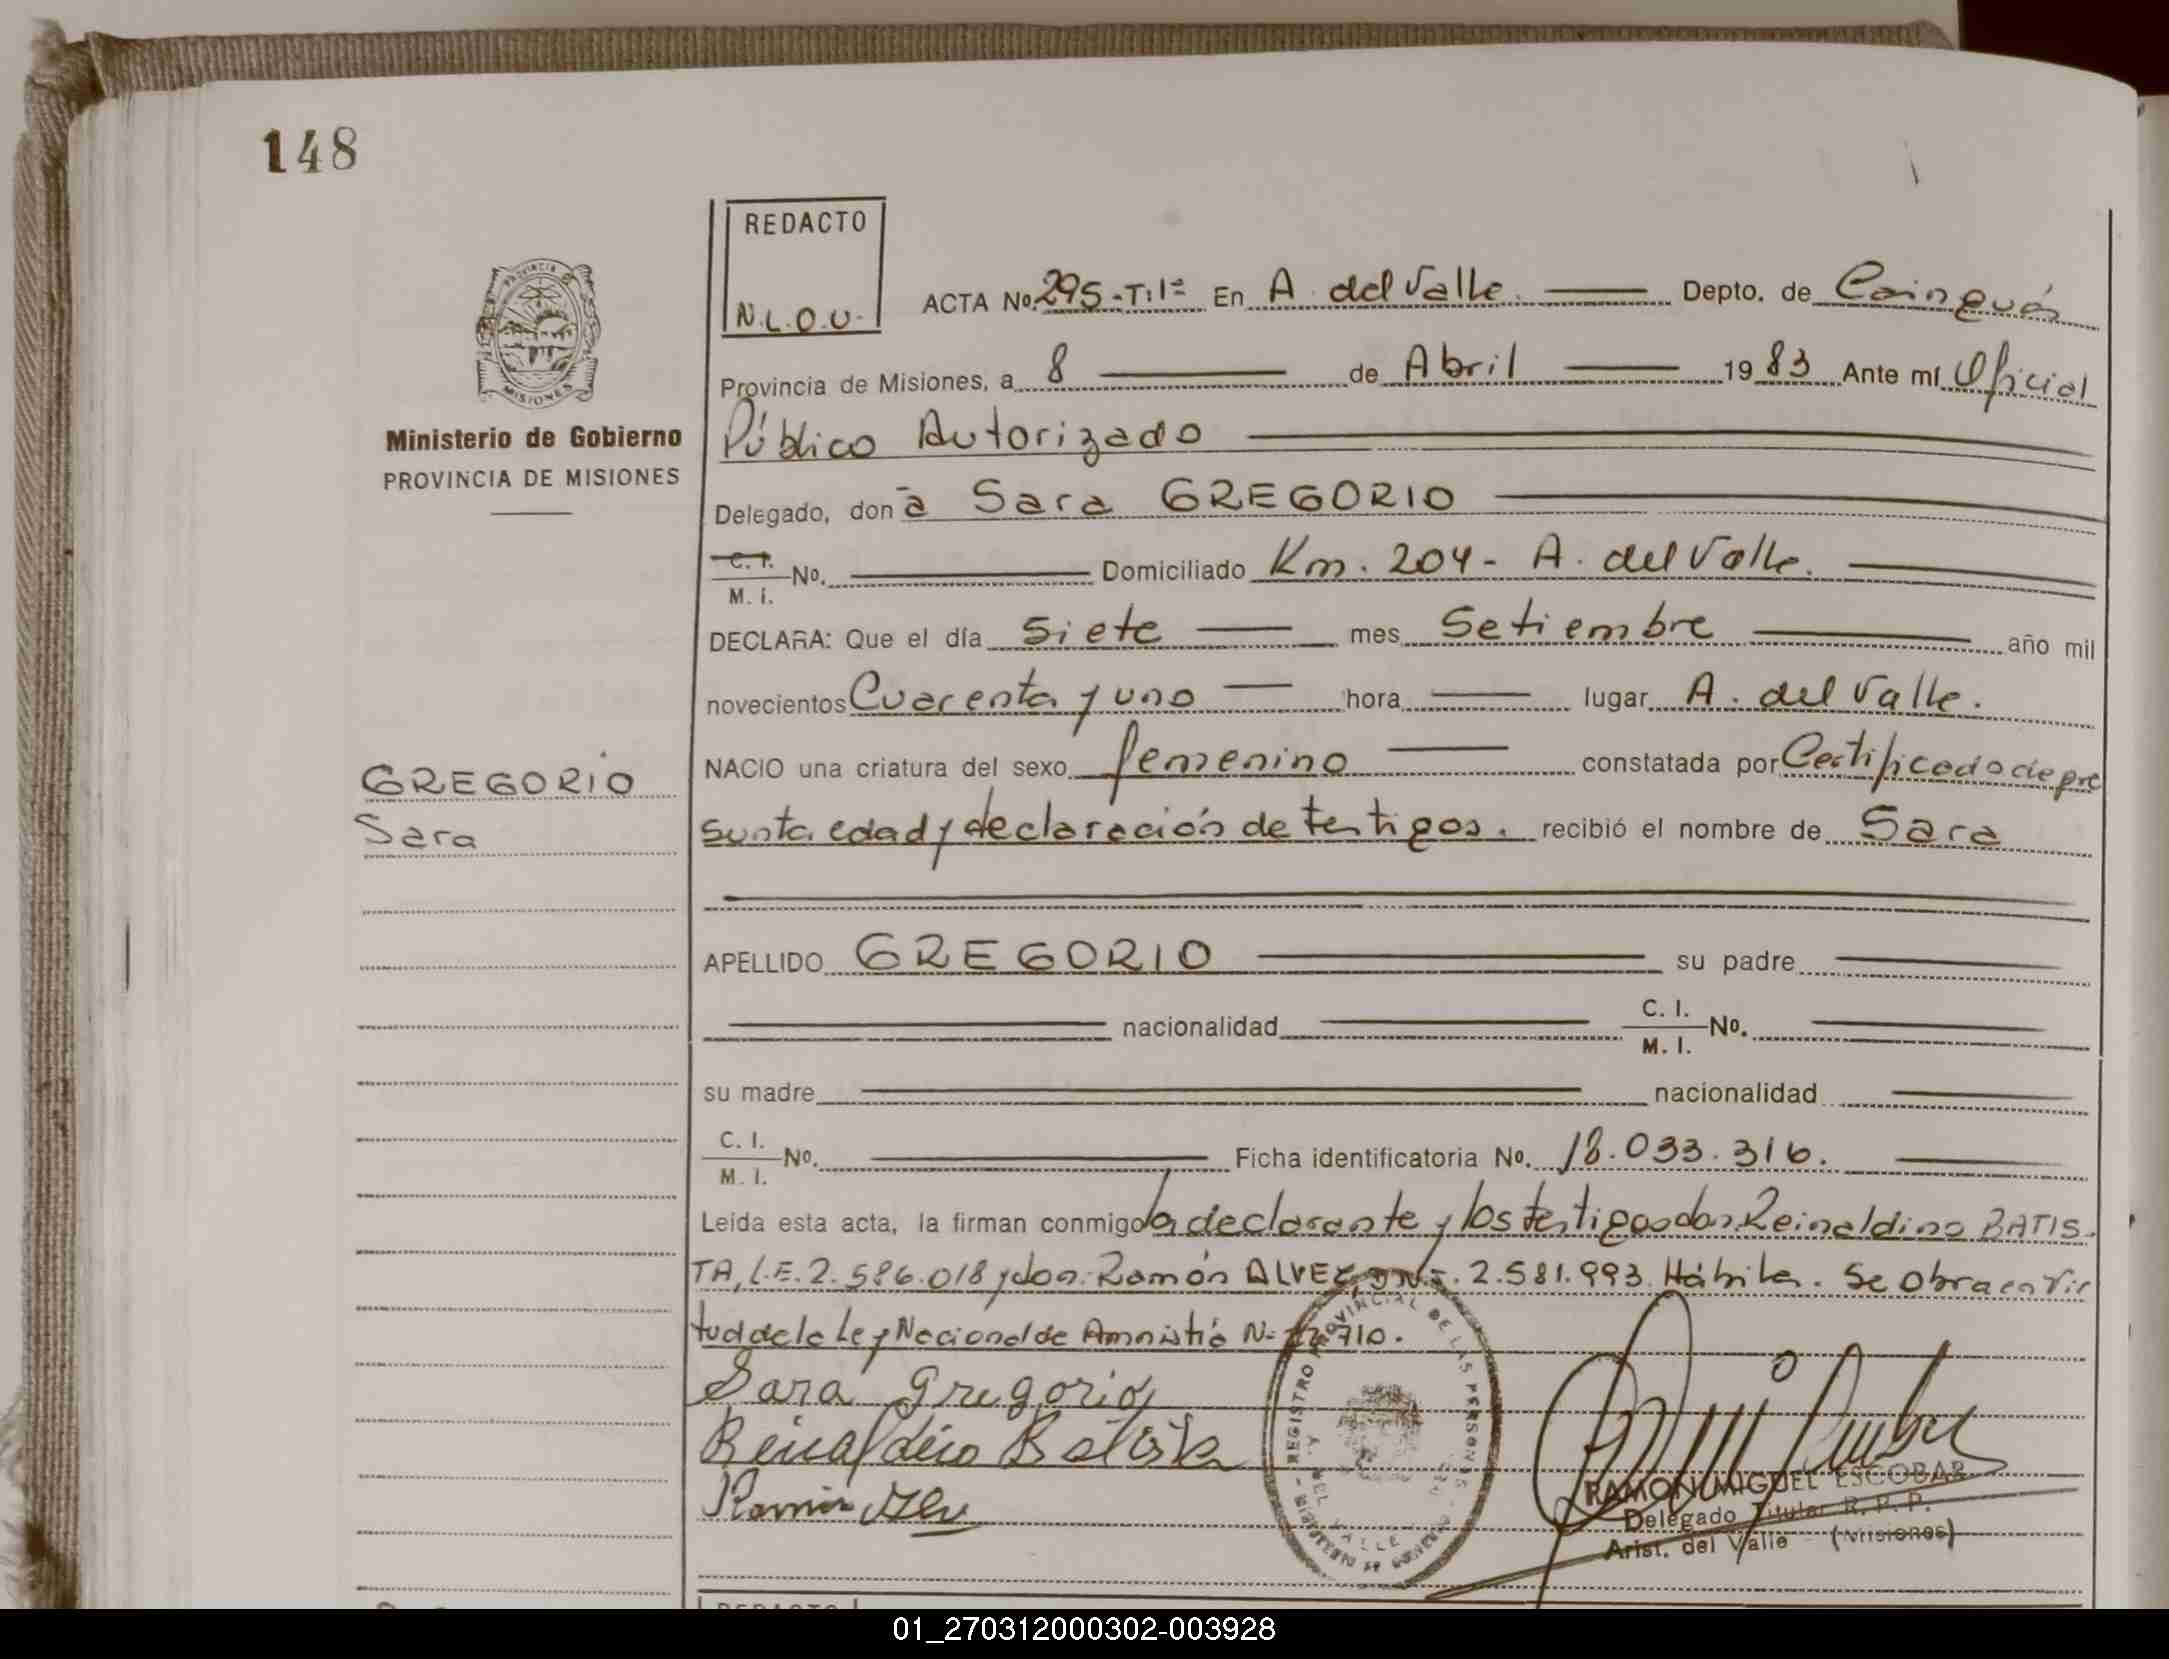 148
REDACTO
N.L.O.U.
ACTA No. 295-T:1ª En A. del Valle. Depto. de Cainguás
Provincia de Misiones, a 8 de Abril 1983 Ante mí Oficial
Público Autorizado
Delegado, donã Sara GREGORIO
C. I. No. Domiciliado Km. 204- A. del Valle.
M. I.
DECLARA: Que el día Siete mes Setiembre año mil
novecientos Cuarenta y uno hora lugar A. del Valle.
NACIO una criatura del sexo femenino constatada por Certificado de pre
sunta edad y declaración de testigos. recibió el nombre de Sara
APELLIDO GREGORIO su padre
nacionalidad C. I. No.
M. I.
su madre nacionalidad
C. I. No. Ficha identificatoria No. 18.033.316.
M. I.
Leída esta acta, la firman conmigo la declarante y los testigos don: Reinaldino BATIS-
TA, L.E. 2.586.018 y don: Ramón ALVEZ, 2.581.993. Hábiles. Se obra en vir
tud de la Ley Nacional de Amnistía Nº 710.
Sara Gregorio
Reinaldino Batista
Ramón
PROVINCIA
MISIONES
Ministerio de Gobierno
PROVINCIA DE MISIONES
GREGORIO
Sara
REGISTRO PROVINCIAL DE LAS PERSONAS
DEL VALLE
MINISTERIO DE GOBIERNO
RAMON MIGUEL ESCOBAR
Delegado Titular R. P. P.
Arist. del Valle - (Misiones)
REDACTO
01_270312000302-003928